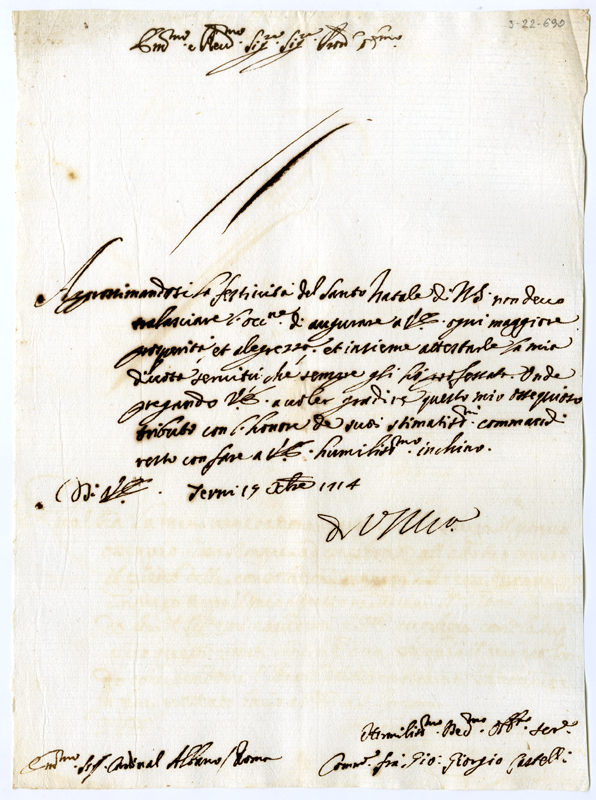 J-22-690
Em.mo e Rev.mo Sig.re Sig.re Pron Col.mo
Approssimandosi la festività del Santo Natale di N.S. non devo
tralasciare l'occ.ne di augurare a V.E. ogni maggiore
prosperità, et alegrezza, et insieme attestarle la mia
divota servitù che sempre gli hò professata. Onde
pregando V.E. a voler gradire questo mio ossequioso
tributo con l'honore de suoi stimatiss.mi commandi
resto con fare a V.E. humiliss.mo inchino.
Di V.E. Terni 19 Xbre 1714
Humiliss.mo Dev.mo Obb.to Ser.e
Em.mo Sig. Cardinal Albano / Roma
Comm.r frà Gio: Giorgio Castelli